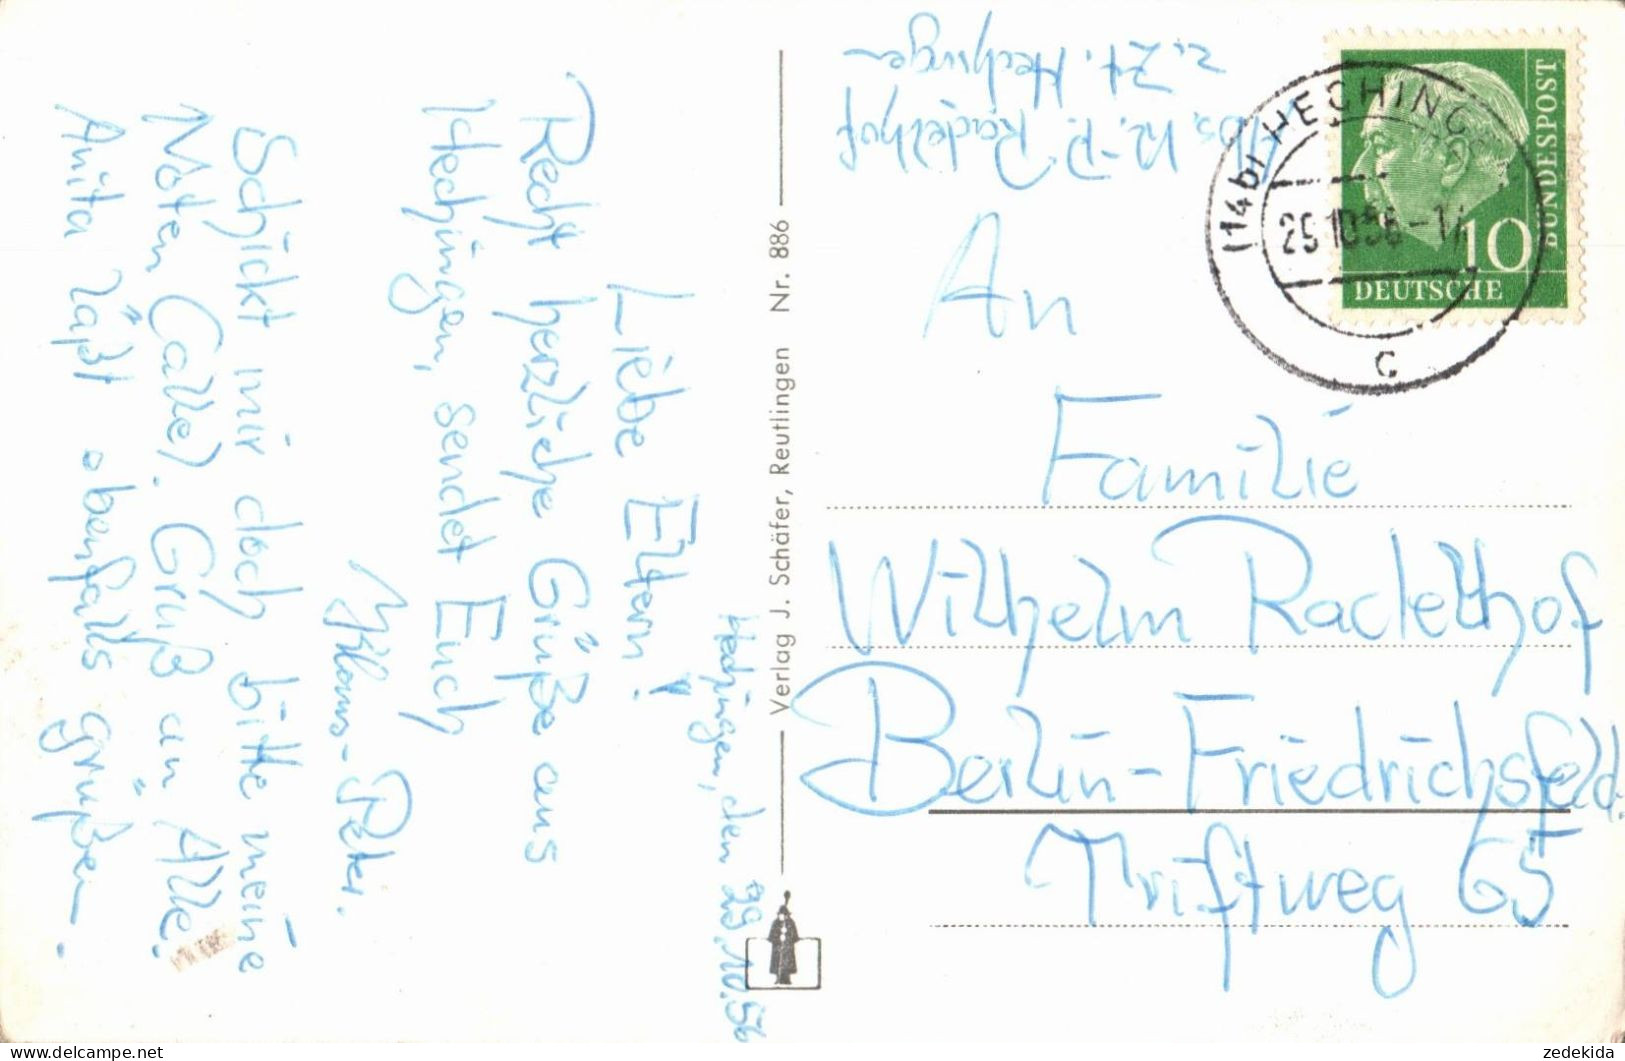 Hechingen, den 29.10.56
Liebe Eltern!
Recht herzliche Grüße aus
Hechingen, sendet Euch
Klaus-Peter.
Schickt mir doch bitte meine
Noten (alle). Gruß an Alle.
Anita läßt ebenfalls grüßen.
Verlag J. Schäfer, Reutlingen Nr. 886
Abs. K.-P. Radelhof
z. Zt. Hechingen
(14b) HECHINGEN
29.10.56-14
c
DEUTSCHE
BUNDESPOST
10
An
Familie
Wilhelm Radelhof
Berlin-Friedrichsfeld.
Triftweg 65
zedekida